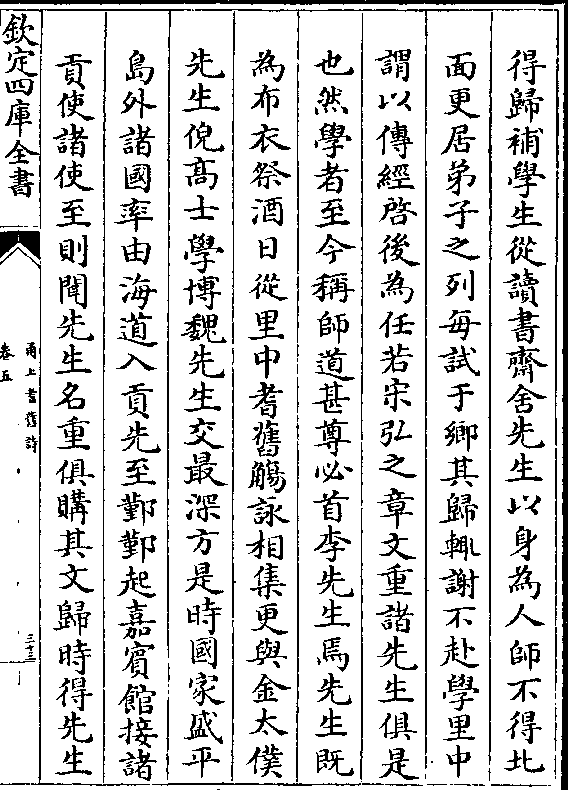 得歸補學生從讀書齋舍先生以身為人師不得北
面更居弟子之列每試于鄉其歸輒謝不赴學里中
謂以傳經啓後為任若宋弘之章文重諸先生俱是
也然學者至今稱師道甚尊必首李先生焉先生既
為布衣祭酒日從里中耆舊觴詠相集更與金太僕
先生倪髙士學博魏先生交最深方是時國家盛平
島外諸國率由海道入貢先至鄞鄞起嘉賓館接諸
貢使諸使至則聞先生名重俱購其文歸時得先生
欽定四庫全書
甬上耆舊詩
卷五
三十三